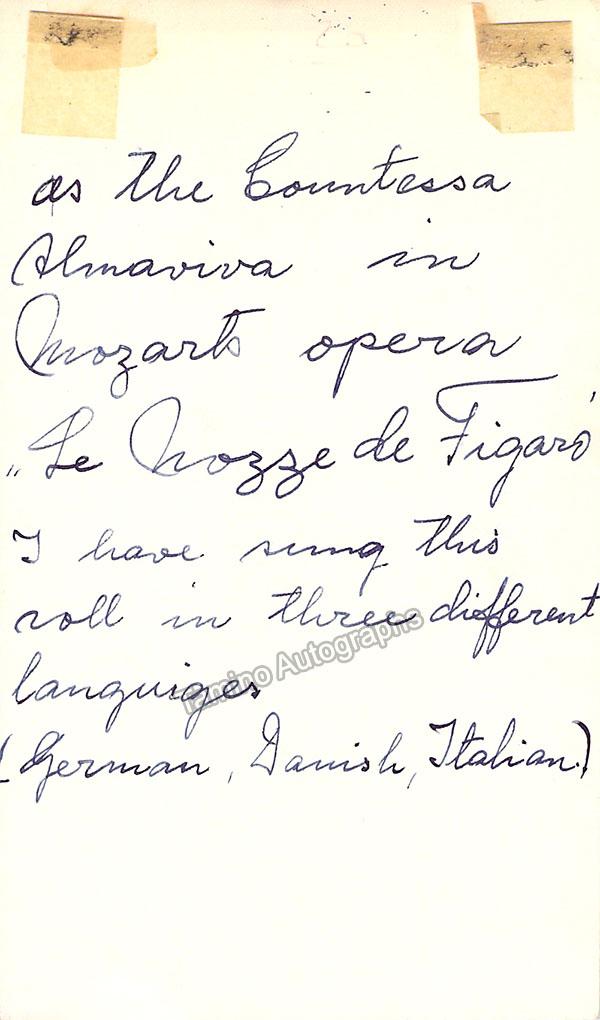 as the Countessa
Almaviva in
Mozarts opera
„Le Nozze de Figaro'
I have sung this
roll in three diefferent
languiges
(German, Danish, Italian.)
Tamino Autographs